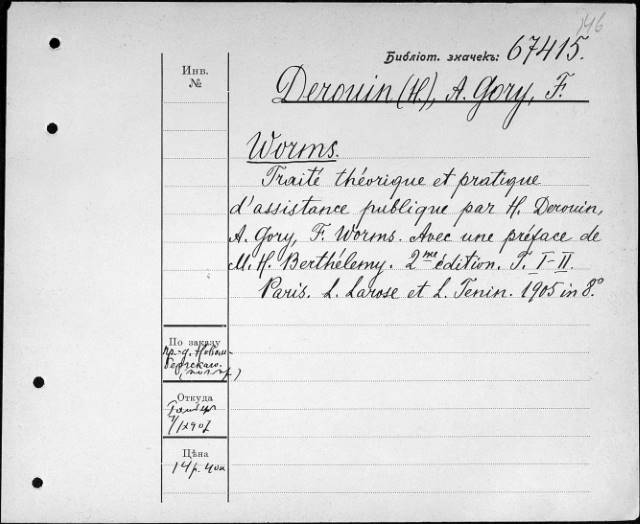 746
Библіот. значекъ: 67415.
Инв.
№
Derouin (H), A. Gory, F.
Worms.
Traité théorique et pratique
d'assistance publique par H. Derouin,
A. Gory, F. Worms. Avec une préface de
M. H. Berthélemy. 2me édition. T. I-II.
Paris. L. Larose et L. Tenin. 1905 in 8.º
По заказу
пр-д.
Откуда
Цѣна
14р. 40к